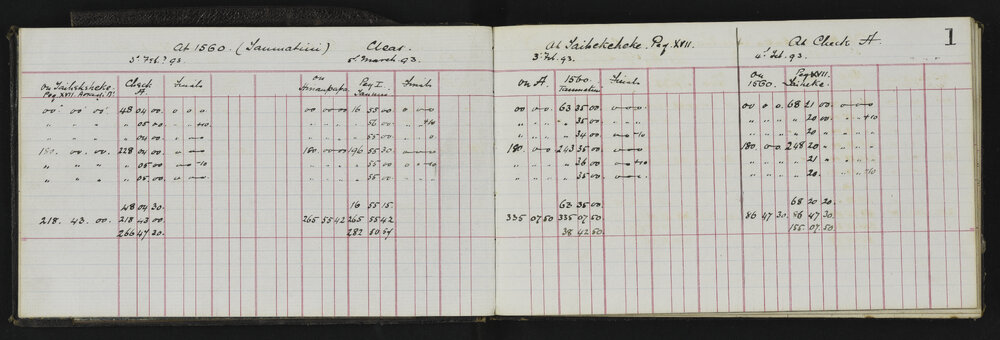 At 1560. (Taumatini) Clear.
3rd Feby 93. 5th March 93.
on Taihekeheke. Check A Finals
Peg XVII.
on Peg I. Finals
00 00 00 48 04 00 0 0 0 00 00 00 16 55 00 0 00
" " " " 05 00 00 +10 " " " " 56 00 " +10
" " " " 04 00 " 00 " " " " 55 00 " " 0
180. 00. 00. 228 04 00 0 00 180 00 00 196 55 30 0 00
" " " " 05 00 00 +10 " " " " 55 00 0 " +10
" " " " 05 00 0 00 " " " " 55 00 " " "
48 04 30 16 55 15.
218. 43. 00. 218 43 00 265 55 42 265 55 42
266 47 20. 282 50 57
At Taihekeheke. Peg XVII.
3rd Feb. 93.
on A. 1560. Finals
Taumatini
00 00 0 63 35 00 0 00
" " " " 35 00 " " "
" " " " 34 00 00 +10
180. 00 0 243 35 00 0 00
" " " " 36 00 00 +10
" " " " 35 00 00 0
63 35 00
335 07 50 335 07 50
38 42 50
At Check A. 1
4th Feb. 93.
on 1560. Peg XVII. Taiheke.
00 0 0 68 21 00 0 00
" " " " 20 00 " " +10
" " " " 20 " " " "
180 00 0 248 20 " " " "
" " " " 21 " " " "
" " " " 20 " " " +10
68 20 20.
86 47 30 86 47 30
155 07 50